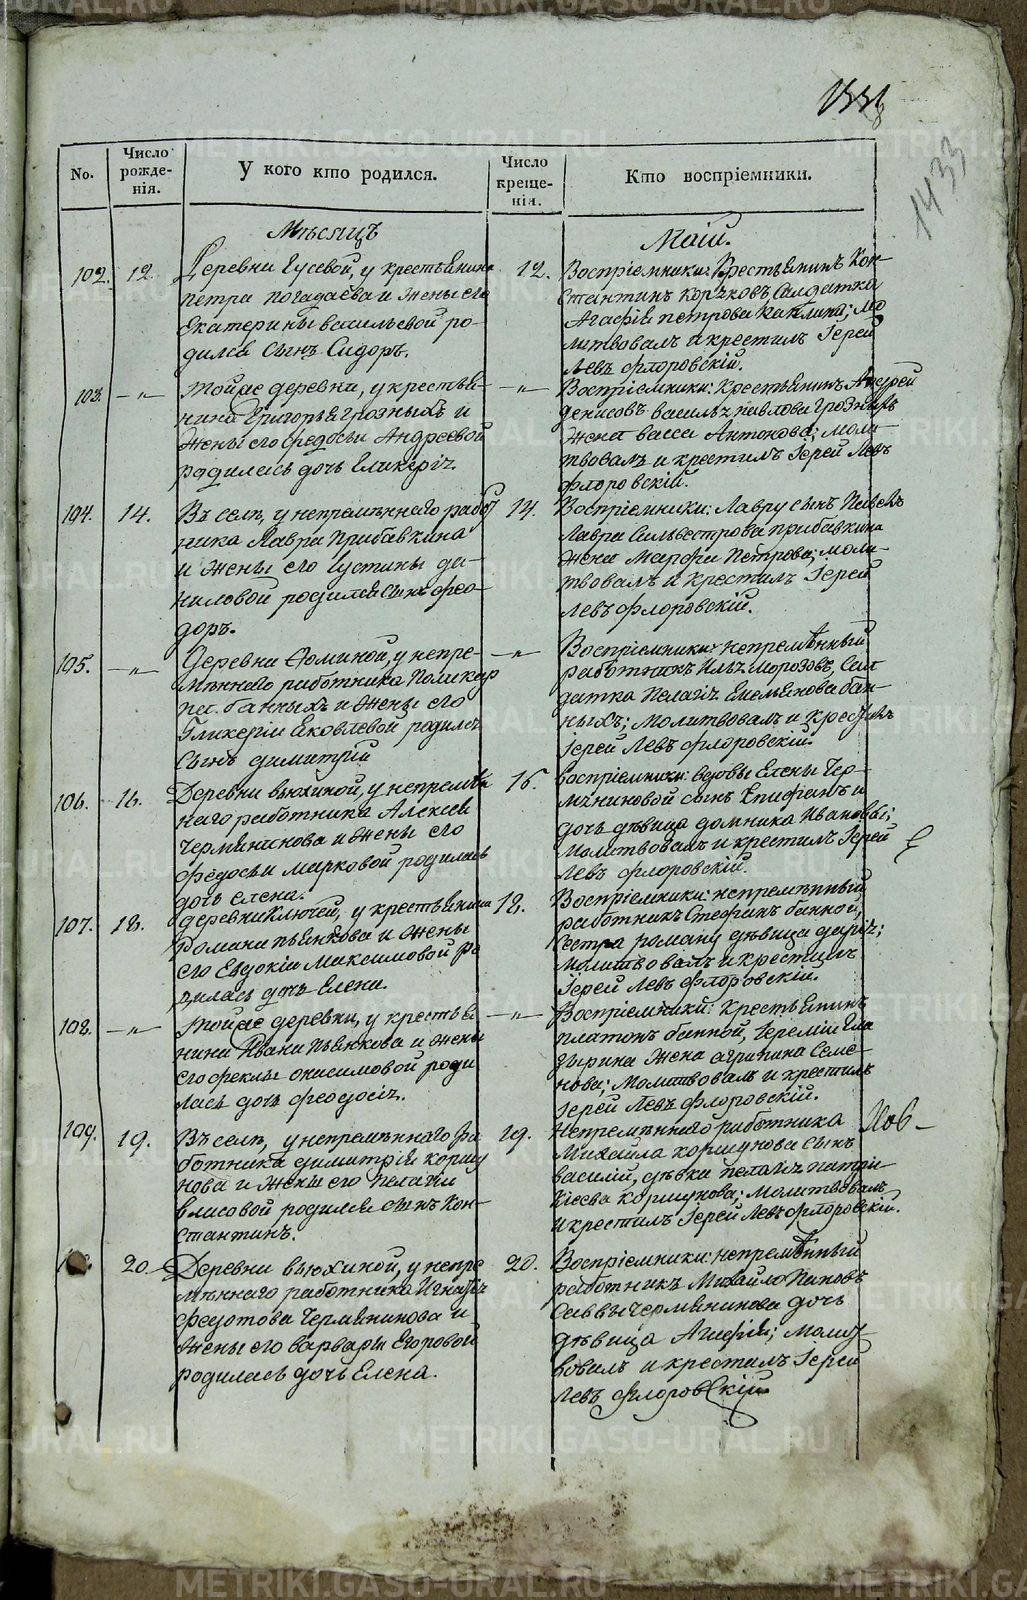 1433
No.
Число рожде-нія.
У кого кто родился.
Число креще-нія.
Кто воспріемники.
Мѣсяцъ
Маій.
102.
12.
Деревни Гусевой, у крестьянина
петра погадаева и жены его
Екатерины васильевой ро-
дился сынъ Сидоръ.
12.
Воспріемники: Крестьянинъ Кон-
стантинъ коръковъ Салдатка
Агафія петрова
литвовалъ и крестилъ Іерей
Левъ флоровскій.
103.
—„—
той же деревни, у крестья-
нина Григорья грозныхъ и
жены его федосьи Андреевой
родилась дочь Гликерія.
—„—
Воспріемники: Крестьянинъ Андрей
денисовъ павлова грозныхъ
жена васса Антонова; моли-
твовалъ и крестилъ Іерей Левъ
флоровскій.
104.
14.
Въ селѣ, у непремѣннаго работ
ника Лавра Прибавкина
и жены его Густины да-
ниловой родился сынъ фео-
доръ.
14.
Воспріемники: Лавра сынъ
Лавра Сильвестрова прибавкина
жена Марфа Петрова; моли-
твовалъ и крестилъ Іерей
Левъ флоровскій.
105.
—„—
Деревни Фоминой, у непре-
мѣннаго работника Поликар
па банныхъ и жены его
Гликеріи Яковлевой родился
сынъ димитрій
—„—
Воспріемники: непремѣнный
работникъ Илья Морозовъ, Сал
датка Пелагія Емельянова бан-
ныхъ; молитвовалъ и крестилъ
Іерей Левъ флоровскій.
106.
16.
Деревни вьюхиной, у непремѣн
наго работника Алексея
Чермянинова и жены его
федосьи марковой родилась
дочь елена.
16.
Воспріемники: вдовы Елены Чер-
мяниновой сынъ Епифанъ и
дочь дѣвица домника Ивановы;
молитвовалъ и крестилъ Іерей
Левъ флоровскій.
107.
18.
деревни Ключей, у крестьянина
Романа пьянкова и жены
его Евдокіи Максимовой ро
дилась дочь Елена.
18.
Воспріемники: непремѣнный
работникъ Стефанъ банной,
сестра романа дѣвица дарія;
молитвовалъ и крестилъ
Іерей Левъ флоровскій.
108.
—„—
той же деревни, у крестья
нина Ивана пьянкова и жены
его феклы онисимовой роди
лась дочь феодосія.
—„—
Воспріемники: Крестьянинъ
платонъ банной, Іереміи Ела
гырина жена агрипина Семе-
нова; молитвовалъ и крестилъ
Іерей Левъ флоровскій.
109.
19.
Въ селѣ, у непремѣннаго ра
ботника димитрія коршу
нова и жены его Пелагіи
власовой родился сынъ Кон-
стантинъ.
19.
Непремѣннаго работника
Михайла коршунова сынъ
василій, дѣвка пелагія патри-
кіева коршунова; молитвовалъ
и крестилъ Іерей Левъ флоровскій.
20.
Деревни вьюхиной, у непре
мѣннаго работника Игнатія
федотова Чермянинова и
жены его варвары Егоровой
родилась дочь Елена.
20.
Воспріемники: непремѣнный
работникъ Михайло Поповъ
Саввы чермянинова дочь
дѣвица Агафія; молит-
вовалъ и крестилъ Іерей
Левъ флоровскій.
METRIKI.GASO-URAL.RU